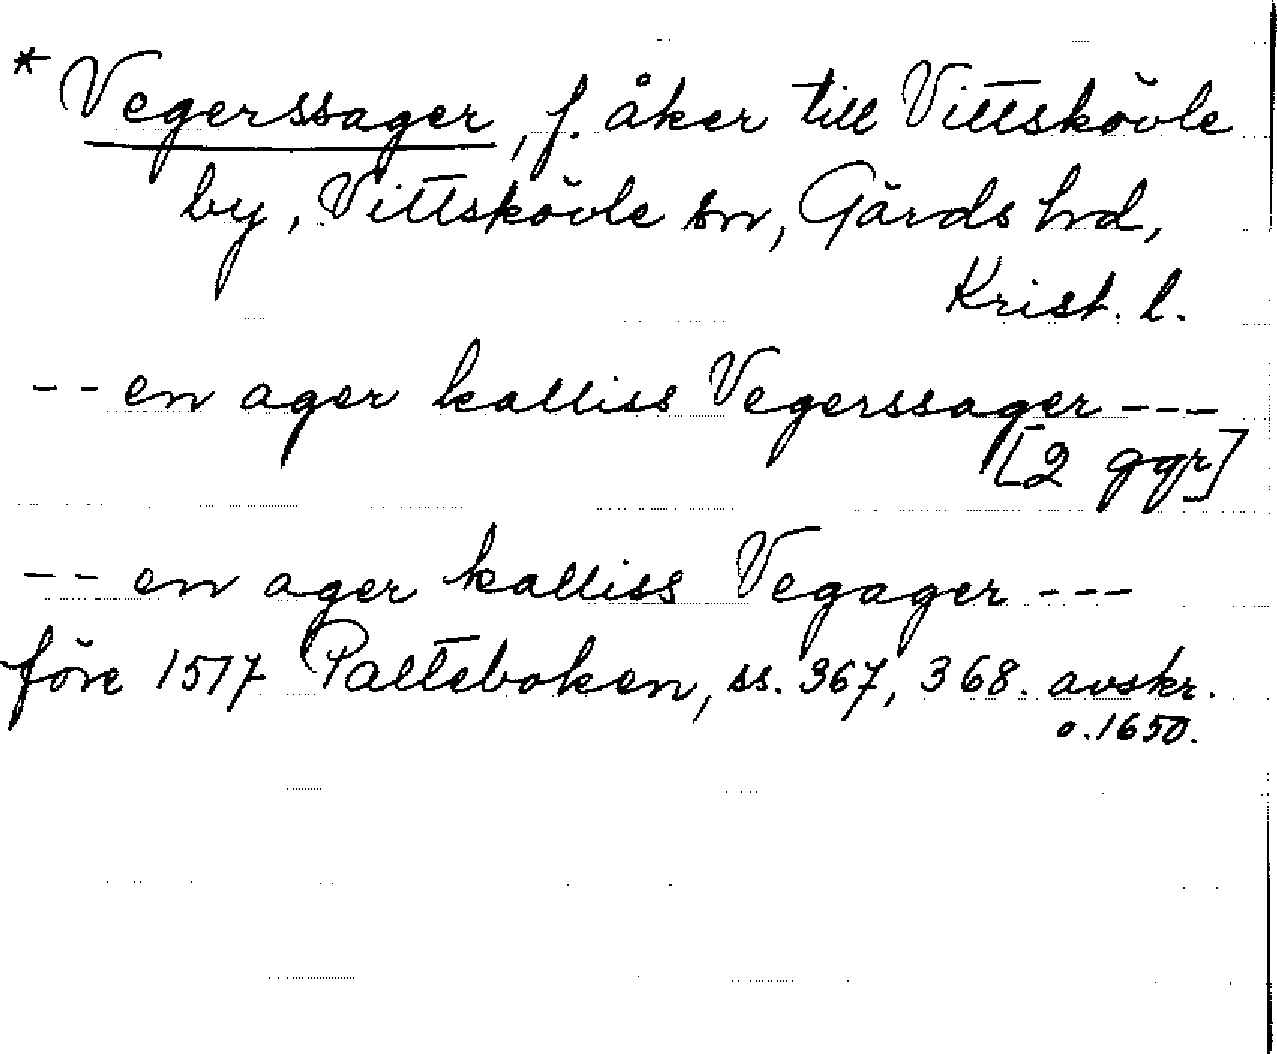 * Vegerssager, f. åker till Vittskövle
by, Vittskövle sn, Gärds hd,
Krist. l.
-- en ager kalliss Vegerssager ---
[2 ggr]
-- en ager kalliss Vegager ---
före 1517 Palteboken, ss. 367, 368. avskr.
o. 1650.